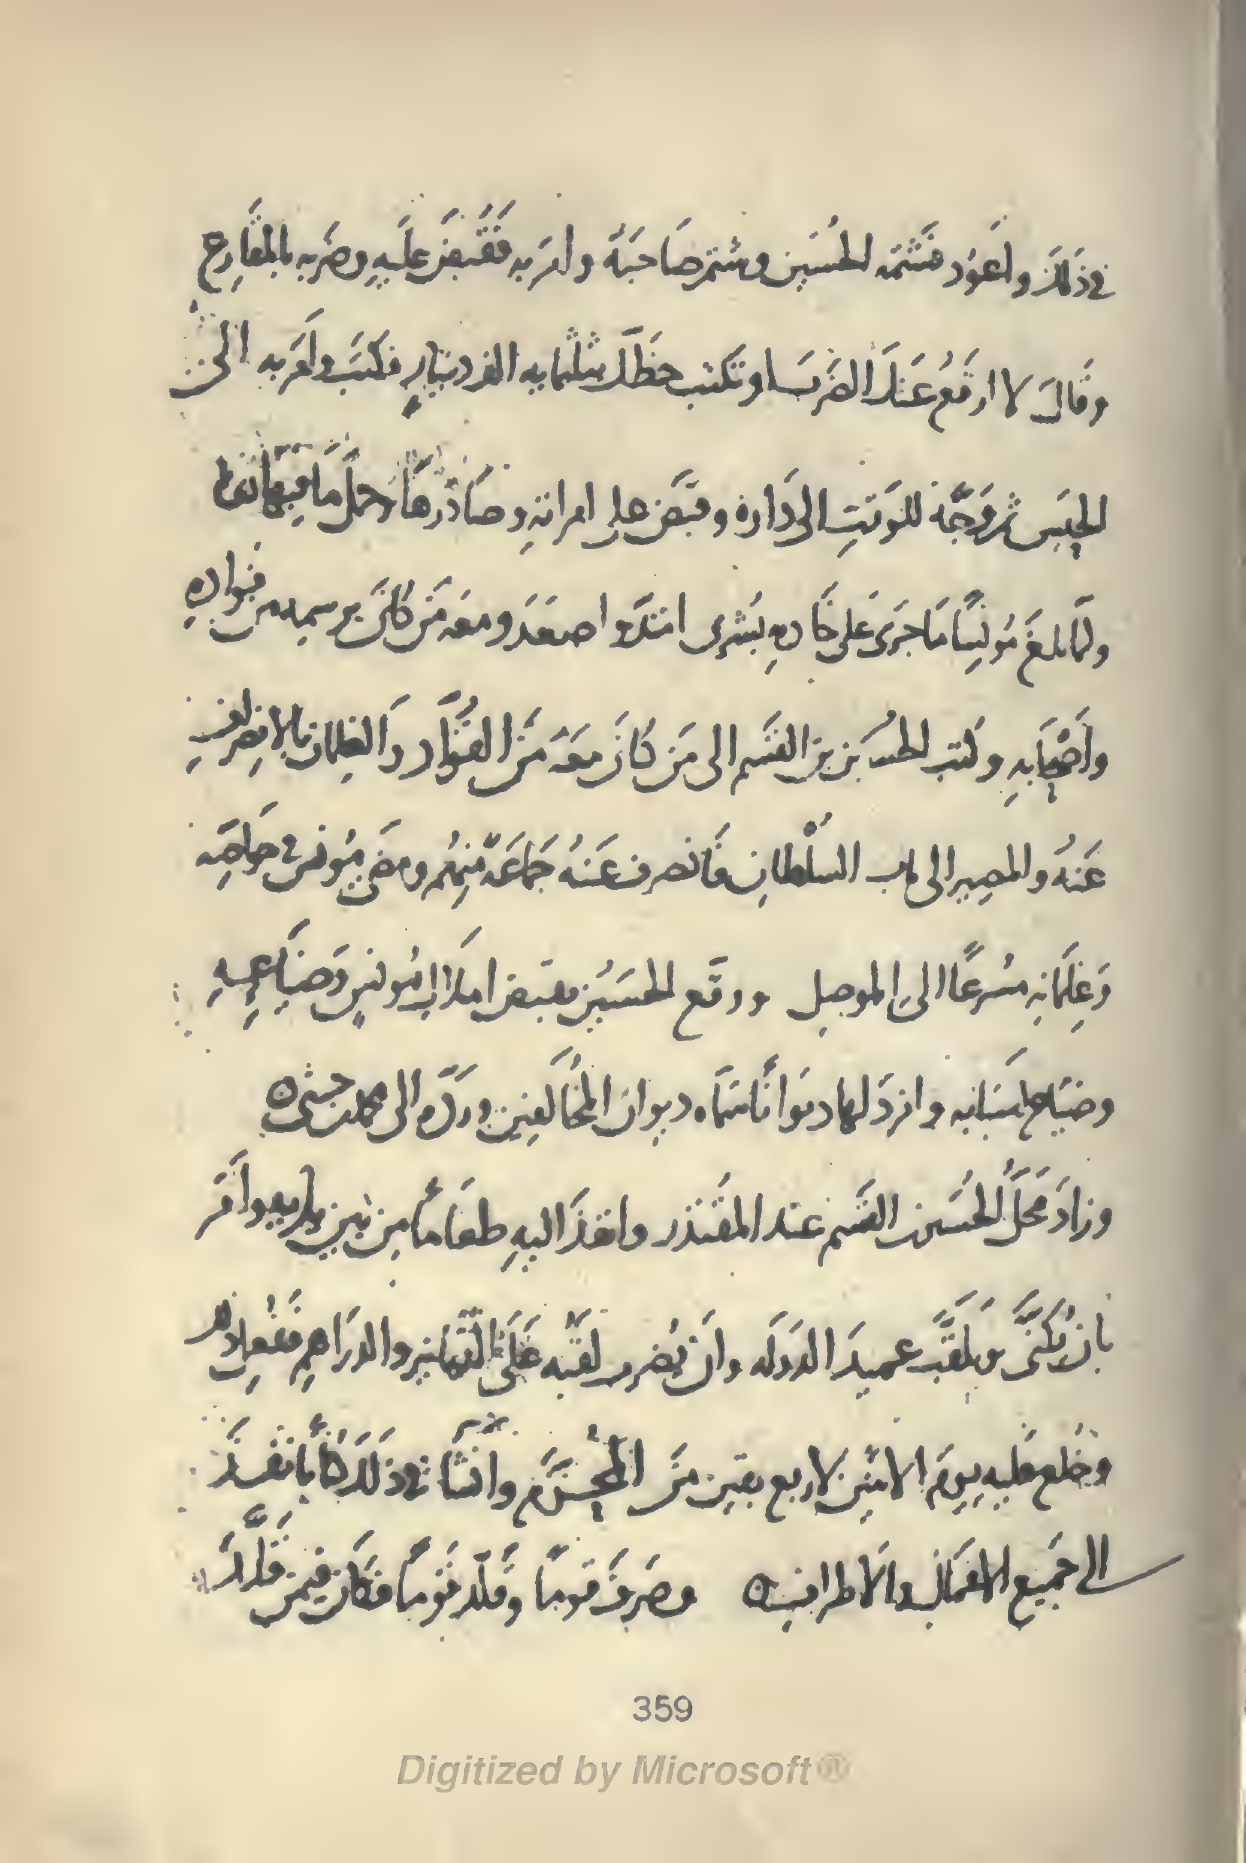 في ذلك واعود فشتمه الحسين وشتم صاحبه وامر به فقبض عليه وضربه بالمقارع
وقال لا ارفع عنك الضرب او تكتب خطك بثلثمايه الف دينار فكتب وامر به الى
الحبس ثم وجه للوقت الى داره وقبض على امراته وصادرها وحمل ما فيها
ولما بلغ مونسا ما جرى على خادمه بشرى امتد واصعد ومعه من كان برسمه من قواده
واصحابه وكتب الحسين بن القسم الى من كان معه من القواد والغلمان بالانصراف
عنه والمصير الى باب السلطان فانصرف عنه جماعة منهم ومضى مونس في خواصه
وغلمانه مسرعا الى الموصل ووقع الحسين بقبض املاك مونس وضياعه
وضياع اسبابه وافرد لها ديوانا سماه ديوان المخالفين ورده الى محمد بن جني
وزاد محل الحسين القسم عند المقتدر وانفذ اليه طعاما من بين يديه وامر
بان يكنى ويلقب عميد الدوله وان يضرب لقبه على الدنانير والدراهم ففعل
وخلع عليه يوم الاثنين لاربع بقين من المحرم وانشا في ذلك كتابا نفذ
الى جميع الاعمال والاطراف وصرف قوما وقلد قوما فكان فيمن قلد
359
Digitized by Microsoft®